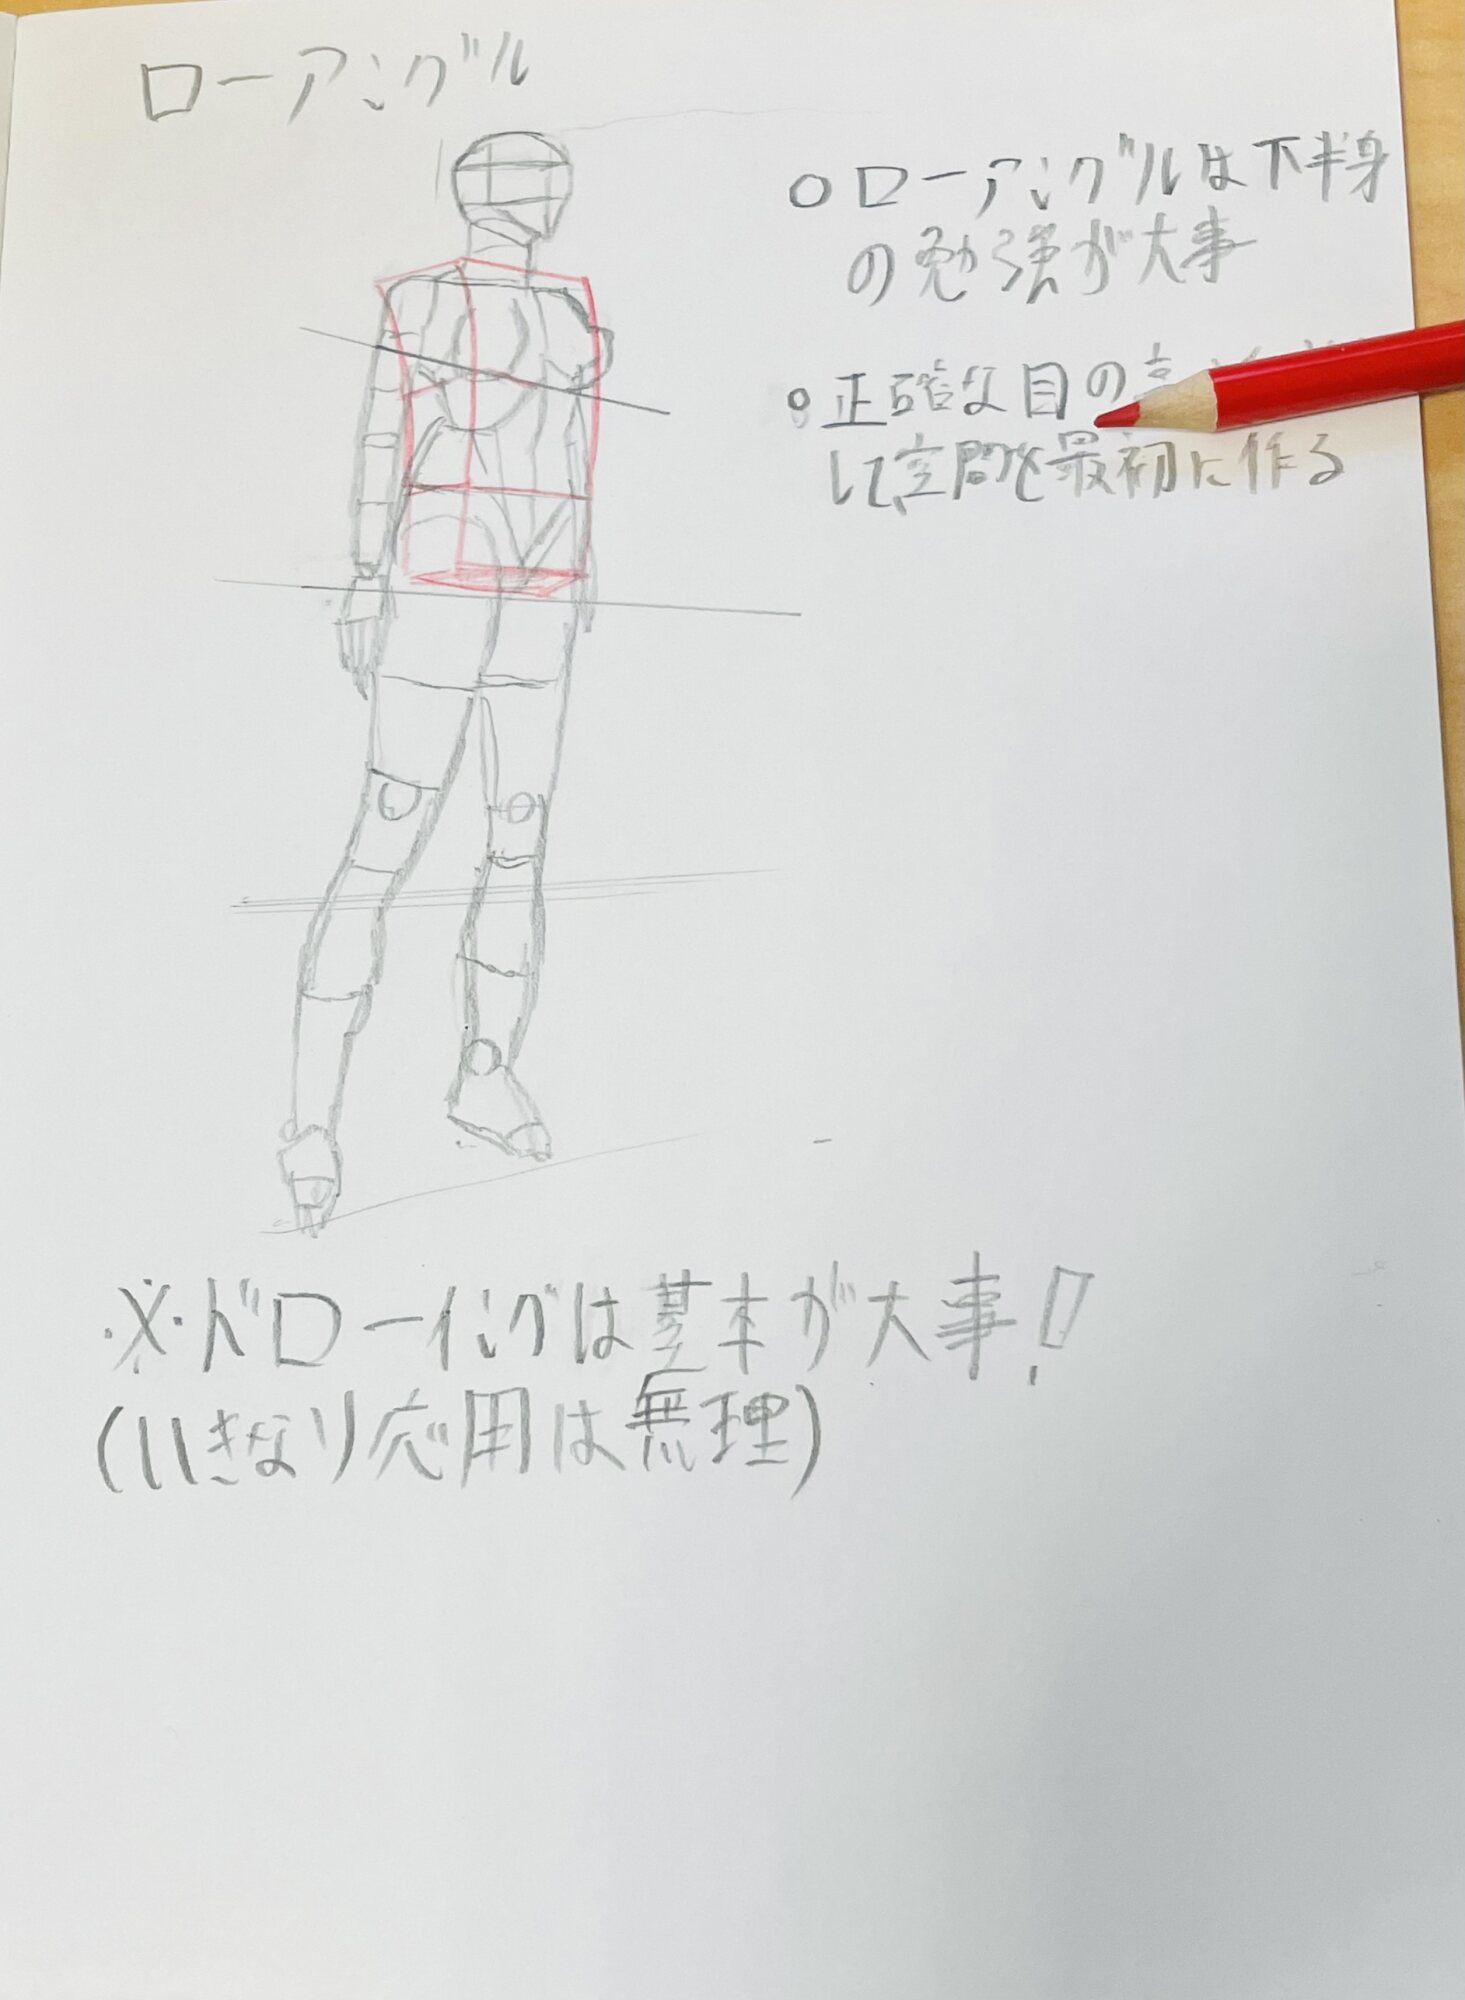 ローアングル
○ ローアングルは下半身
の勉強が大事
○ 正確な目の
して、空間を最初に作る
※ドローイングは基本が大事!
(いきなり応用は無理)